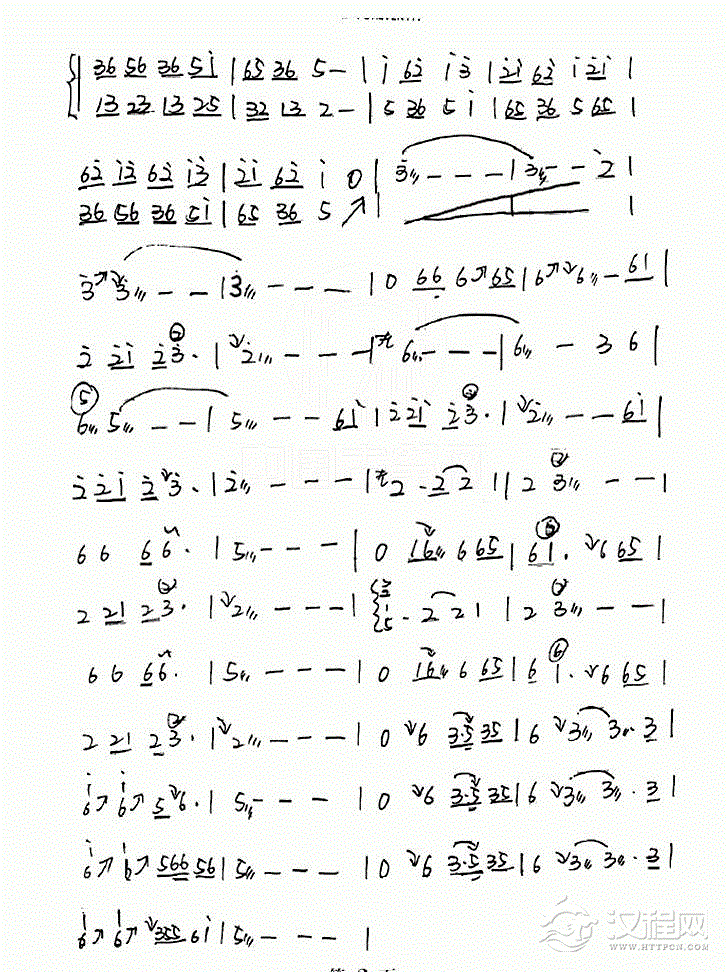 36 56 36 5i | 65 36 5 — | i 6ż i 3̇ | 2̇i 62̇ i 2̇i |
13 23 13 25 | 32 13 2 — | 5 36 5 i | 65 36 5 65 |
62̇ i2̇ 62̇ i3̇ | 2̇i 62̇ i 0 | 3̇ – – – | 3̇ – – 2̇ |
36 56 36 5i | 65 36 5 ↗ |
3̇ ↗ 3̇ – – | 3̇ – – – | 0 66 6 ↗ 65 | 6 ↗ 6 – 61 |
2̇ 2̇i 2̇3̇ · | 2̇ – – – | 6 – – – | 6 – 3 6 |
6 5 – – | 5 – – 6i | 2̇ 2̇i 2̇3̇ · | 2̇ – – 6i |
2̇ 2̇i 2̇3̇ · | 2̇ – – – | 2 · 2 2 1 | 2 3 – – |
6 6 66 · | 5 – – – | 0 16 6 65 | 61 · 6 65 |
2 21 23 · | 2 – – – | 5 · 2 2 1 | 2 3 – – |
6 6 66 · | 5 – – – | 0 16 6 65 | 6 1 · 6 65 |
2 21 23 · | 2 – – – | 0 6 3·5 35 | 6 3 3 · 3 |
6 ↗ 6 ↗ 56 · | 5 – – – | 0 6 3·5 35 | 6 3 3 · 3 |
6 ↗ 6 ↗ 566 56 | 5 – – – | 0 6 3·5 35 | 6 3 3 · 3 |
6 ↗ 6 ↗ 355 6i | 5 – – – |
汉程网
HTTPCN.COM